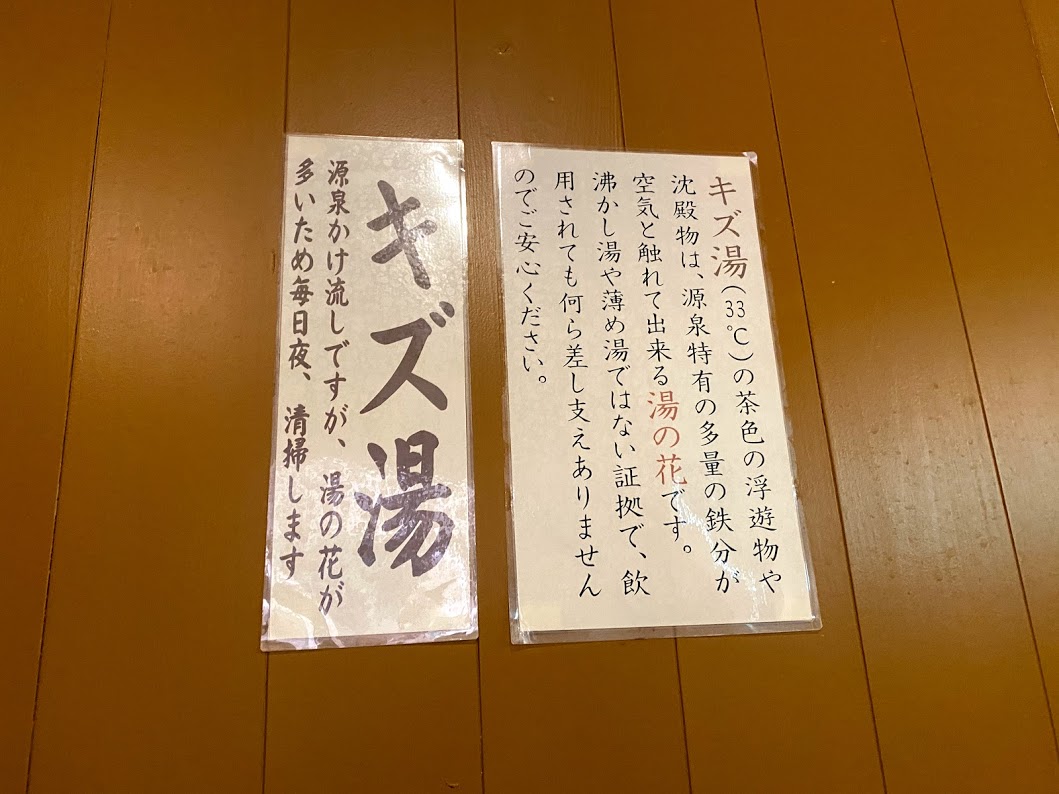 キズ湯(33℃)の茶色の浮遊物や
沈殿物は、源泉特有の多量の鉄分が
空気と触れて出来る湯の花です。
沸かし湯や薄め湯ではない証拠で、飲
用されても何ら差し支えありません
のでご安心ください。
キズ湯
源泉かけ流しですが、湯の花が
多いため毎日夜、清掃します